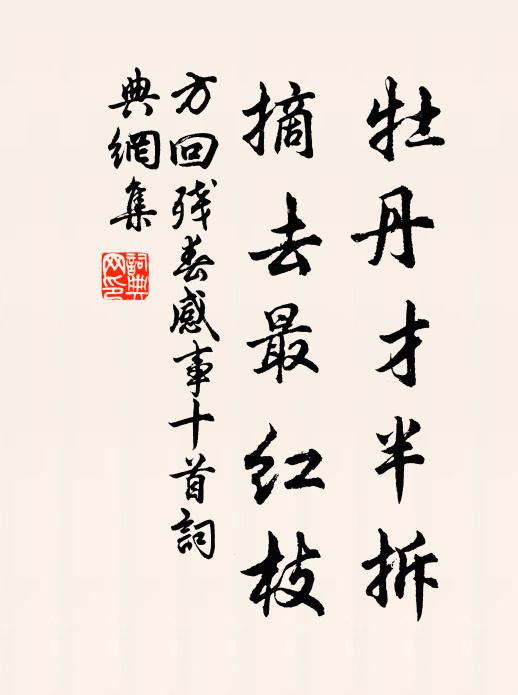 牡丹才半拆
摘去最红枝
方回残春感事十首詞
典網集
詞典网印